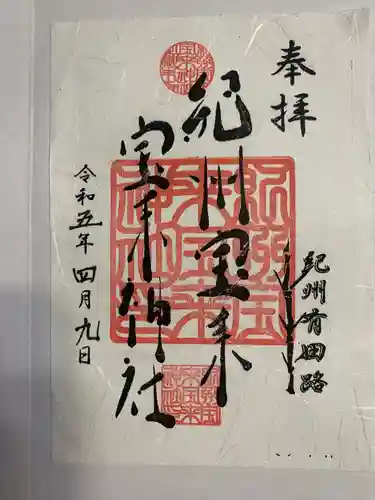 奉拝
紀州有田路
紀州宝来
宝来神社
令和五年四月九日